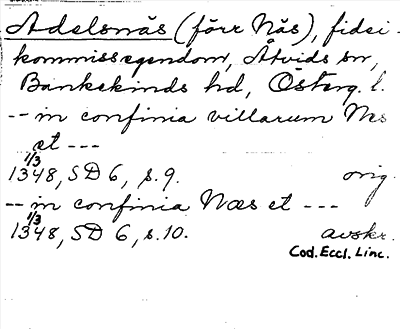 Adelsnäs (förr Näs), fidei-
kommissegendom, Åtvids sn,
Bankekinds hd, Österg. l.
-- in confinia villarum Næs
et ---
1/3
1348, SD 6, s. 9. orig.
-- in confinia Næs et ---
1/3
1348, SD 6, s. 10. avskr.
Cod. Eccl. Linc.